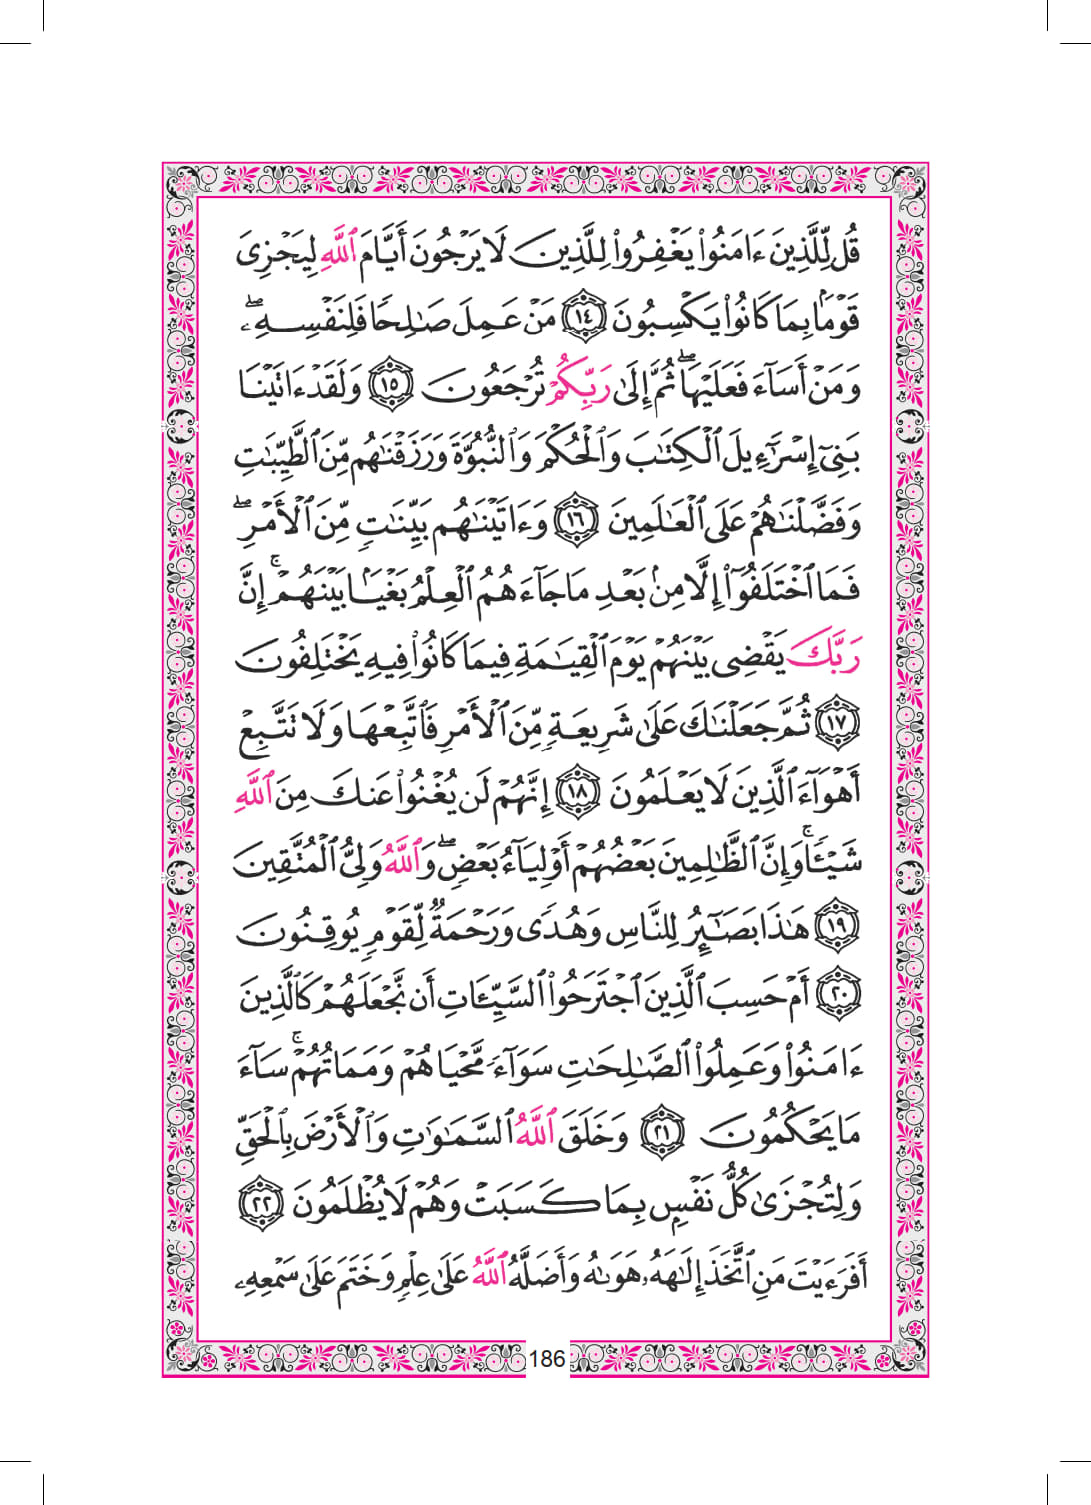 قُل لِّلَّذِينَ ءَامَنُوا۟ يَغْفِرُوا۟ لِلَّذِينَ لَا يَرْجُونَ أَيَّامَ ٱللَّهِ لِيَجْزِىَ
قَوْمًۢا بِمَا كَانُوا۟ يَكْسِبُونَ ١٤ مَنْ عَمِلَ صَـٰلِحًا فَلِنَفْسِهِۦ ۖ
وَمَنْ أَسَآءَ فَعَلَيْهَا ۖ ثُمَّ إِلَىٰ رَبِّكُمْ تُرْجَعُونَ ١٥ وَلَقَدْ ءَاتَيْنَا
بَنِىٓ إِسْرَٰٓءِيلَ ٱلْكِتَـٰبَ وَٱلْحُكْمَ وَٱلنُّبُوَّةَ وَرَزَقْنَـٰهُم مِّنَ ٱلطَّيِّبَـٰتِ
وَفَضَّلْنَـٰهُمْ عَلَى ٱلْعَـٰلَمِينَ ١٦ وَءَاتَيْنَـٰهُم بَيِّنَـٰتٍ مِّنَ ٱلْأَمْرِ ۖ
فَمَا ٱخْتَلَفُوٓا۟ إِلَّا مِنۢ بَعْدِ مَا جَآءَهُمُ ٱلْعِلْمُ بَغْيًۢا بَيْنَهُمْ ۚ إِنَّ
رَبَّكَ يَقْضِى بَيْنَهُمْ يَوْمَ ٱلْقِيَـٰمَةِ فِيمَا كَانُوا۟ فِيهِ يَخْتَلِفُونَ
١٧ ثُمَّ جَعَلْنَـٰكَ عَلَىٰ شَرِيعَةٍ مِّنَ ٱلْأَمْرِ فَٱتَّبِعْهَا وَلَا تَتَّبِعْ
أَهْوَآءَ ٱلَّذِينَ لَا يَعْلَمُونَ ١٨ إِنَّهُمْ لَن يُغْنُوا۟ عَنكَ مِنَ ٱللَّهِ
شَيْـًٔا ۚ وَإِنَّ ٱلظَّـٰلِمِينَ بَعْضُهُمْ أَوْلِيَآءُ بَعْضٍ ۖ وَٱللَّهُ وَلِىُّ ٱلْمُتَّقِينَ
١٩ هَـٰذَا بَصَـٰٓئِرُ لِلنَّاسِ وَهُدًى وَرَحْمَةٌ لِّقَوْمٍ يُوقِنُونَ
٢٠ أَمْ حَسِبَ ٱلَّذِينَ ٱجْتَرَحُوا۟ ٱلسَّيِّـَٔاتِ أَن نَّجْعَلَهُمْ كَٱلَّذِينَ
ءَامَنُوا۟ وَعَمِلُوا۟ ٱلصَّـٰلِحَـٰتِ سَوَآءً مَّحْيَاهُمْ وَمَمَاتُهُمْ ۚ سَآءَ
مَا يَحْكُمُونَ ٢١ وَخَلَقَ ٱللَّهُ ٱلسَّمَـٰوَٰتِ وَٱلْأَرْضَ بِٱلْحَقِّ
وَلِتُجْزَىٰ كُلُّ نَفْسٍۭ بِمَا كَسَبَتْ وَهُمْ لَا يُظْلَمُونَ ٢٢
أَفَرَءَيْتَ مَنِ ٱتَّخَذَ إِلَـٰهَهُۥ هَوَىٰهُ وَأَضَلَّهُ ٱللَّهُ عَلَىٰ عِلْمٍ وَخَتَمَ عَلَىٰ سَمْعِهِۦ
186